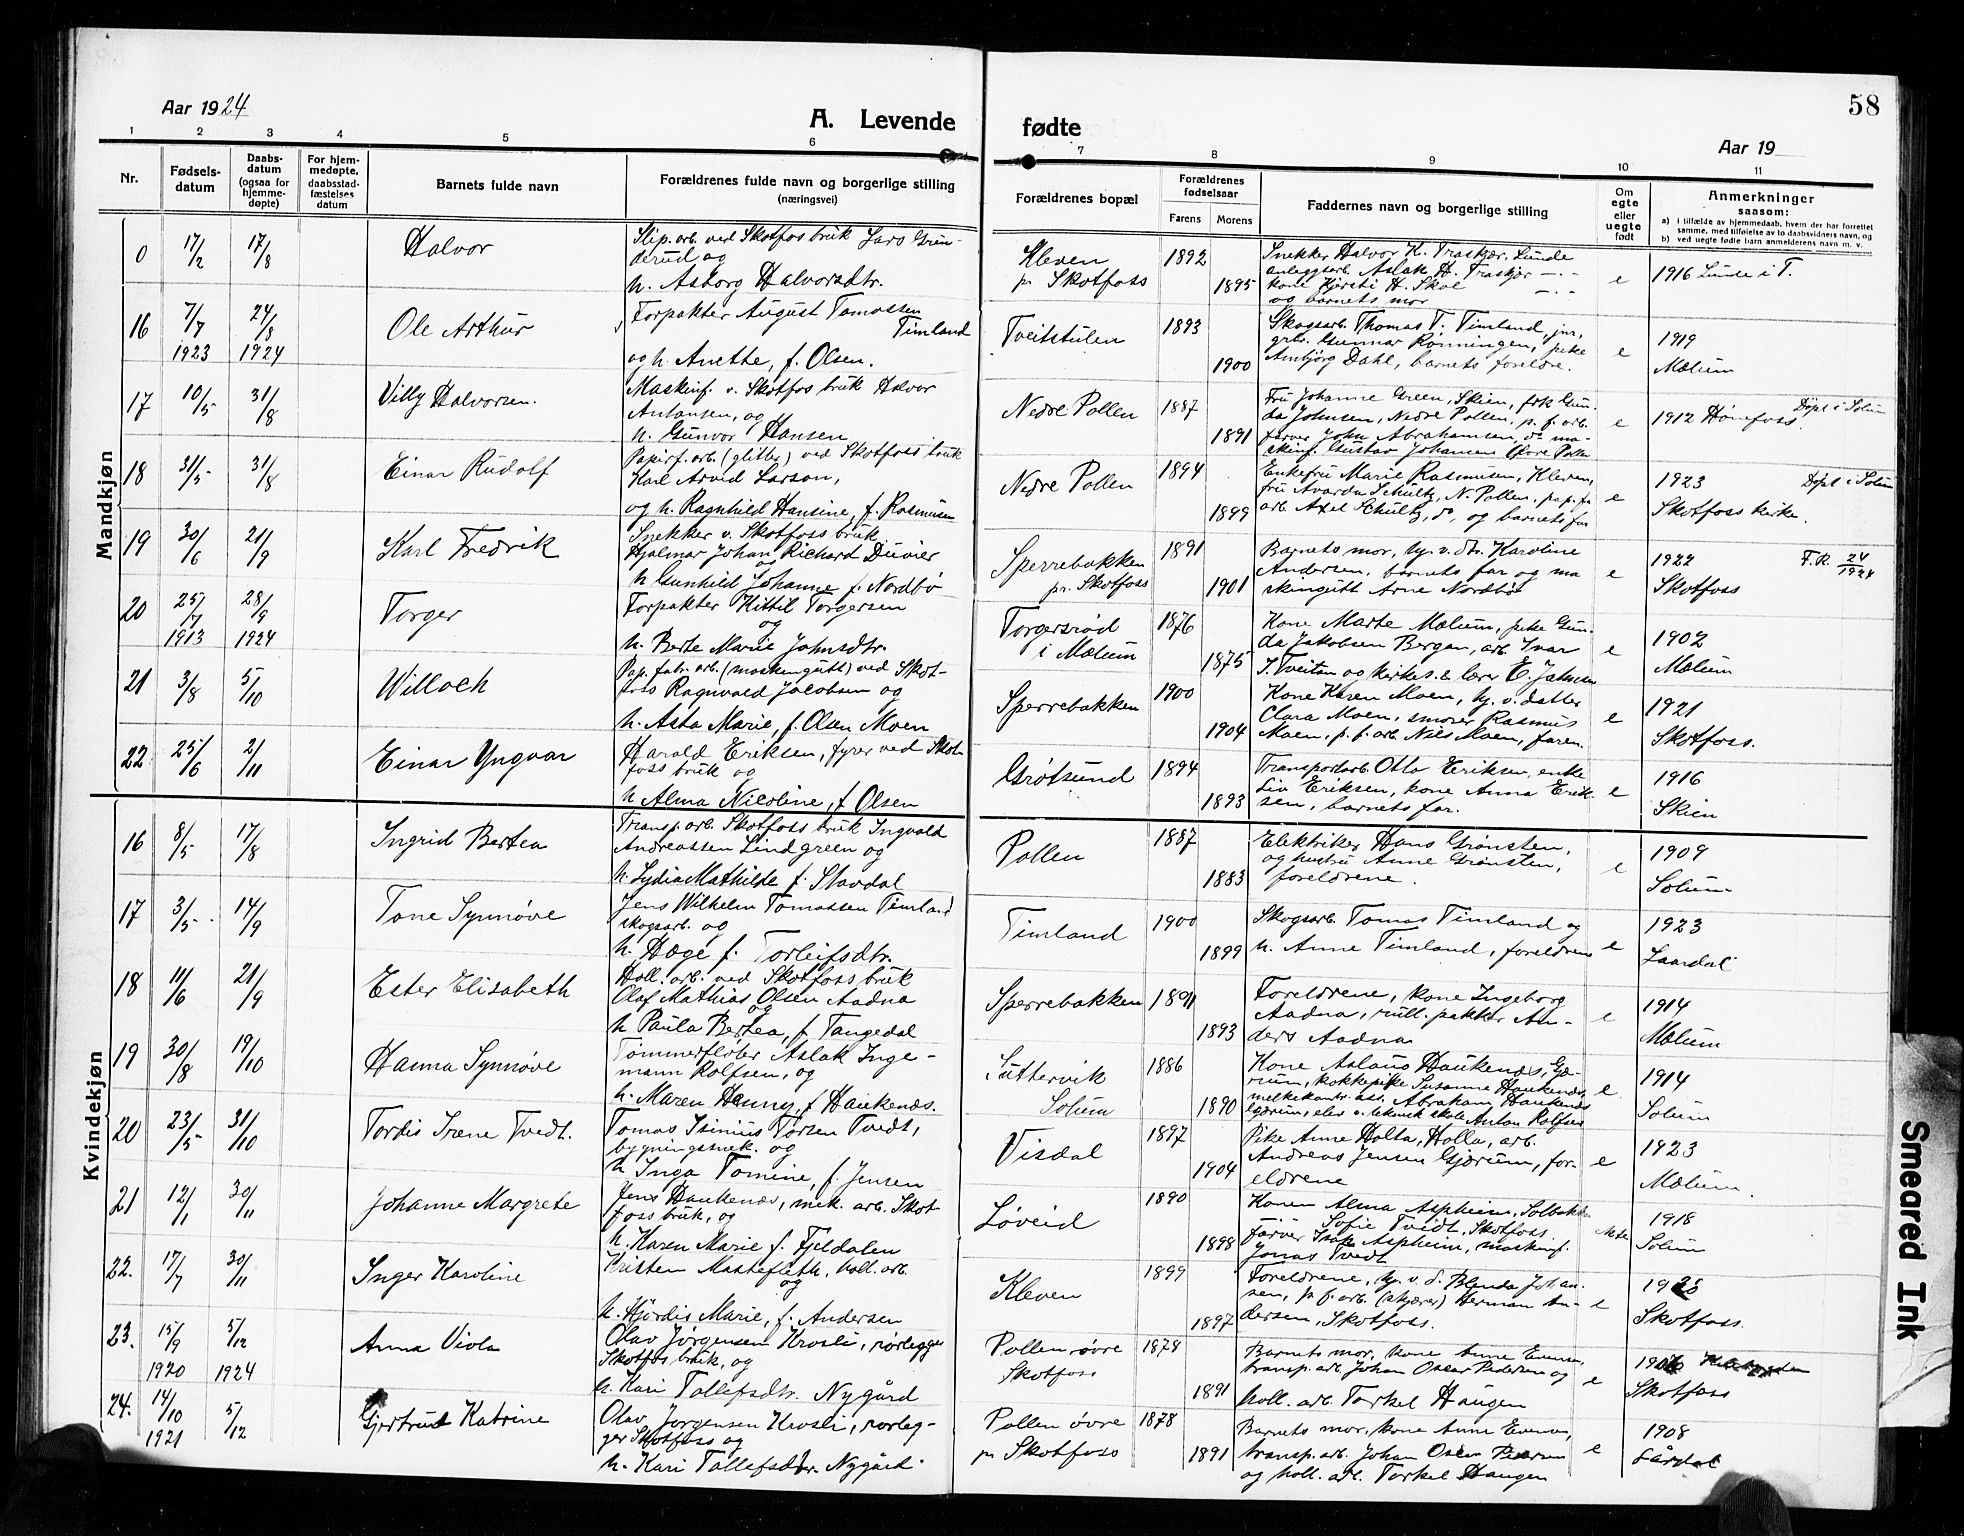 58
Aar 1924
A. Levende
fødte
Aar 19
1 2 3 4 5 6 7 8 9 10 11
Nr.
Fødsels-
datum
Daabs-
datum
(ogsaa for
hjemme-
døpte)
For hjem-
medøpte,
daabsstad-
fæstelses
datum
Barnets fulde navn
Forældrenes fulde navn og borgerlige stilling
(næringsvei)
Forældrenes bopæl
Forældrenes
fødselsaar
Farens Morens
Faddernes navn og borgerlige stilling
Om
egte
eller
uegte
født
Anmerkninger
saasom:
a) i tilfælde av hjemmedaab, hvem der har forrettet
samme, med tilføielse av to daabsvidners navn, og
b) ved uegte fødte barn anmelderens navn m. v.
Mandkjøn
0 17/2 17/8 Halvor
Slip. arb. ved Skotfos bruk Lars Grin-
derud og
h. Asborg Halvorsdtr.
Kleven
pr Skotfoss
1892
1895
Snekker Halvor K. Traskjær, Lunde
anleggsarb. Aslak H. Traskjær —"—
kone Kjersti H. Skoe —"—
og barnets mor
e
1916 Lunde i T.
16 7/7 1923 24/8 1924 Ole Arthur
Forpakter August Tomassen
Timland
og h. Anette, f. Olsen.
Tveitstulen
1893
1900
Skogsarb. Thomas T. Timland, jnr,
grb. Gunnar Rønningen, pike
Ambjørg Dahl, barnets foreldre.
e
1919
Mælum
17 10/5 31/8 Villy Halvorsen.
Maskinf. v. Skotfos bruk Halvor
Antonsen, og
h. Gunvor Hansen
Nedre Pollen
1887
1891
Fru Johanne Green, Skien, frk Gun-
da Johnsen, Nedre Pollen, p. f. arb.
farver John Abrahamsen, do ma-
skinf. Gustav Johansen Øvre Pollen
e
1912 Hønefoss. Døpt i Solum
18 31/5 31/8 Einar Rudolf
Papirf. arb. (glitter) ved Skotfoss bruk
Karl Arvid Larson,
og h. Ragnhild Hansine, f. Rasmusen
Nedre Pollen
1894
1899
Enkefru Marie Rasmusen, Kleven,
fru Avarda Schultz, N. Pollen, pap. fa.
arb. Axel Schultz, do, og barnets far
e
1923 Døpt i Solum
Skotfoss kirke.
19 30/6 21/9 Karl Fredrik
Snekker v. Skotfoss bruk
Hjalmar Johan Richard Duvier
og
h Gunhild Johanne f. Nordbø
Sperrebakken
pr. Skotfoss
1891
1901
Barnets mor, ty. v. dtr. Karoline
Andersen, barnets far og ma
skingutt Arne Nordbø
e
1922 F.R. 24/1924
Skotfoss
20 25/7 1913 28/9 1924 Torger
Forpakter Kittil Torgersen
og
h. Berte Marie Johnsdtr.
Torgersrød
i Mælum
1876
1875
Kone Marte Mælum, pike Gun-
da Jakobsen Bergan, arb. Ivar
T. Tveitan og kirkes. & lærer E. Jahnsen
e
1902
Mælum
21 3/8 5/10 Willoch
Pap. fab. arb. (maskingutt) ved Skot-
foss Ragnvald Jacobsen og
h. Asta Marie, f. Olsen Moen
Sperrebakken
1900
1904
Kone Karen Moen, ty. v. datter
Clara Moen, smører Rasmus
Moen, p. f. arb Nils Moen, faren.
e
1921
Skotfoss.
22 25/6 2/11 Einar Yngvar
Harald Eriksen, fyrer ved Skot-
foss bruk og
h Alma Nicoline, f Olsen
Grøtsund
1894
1893
Transportarb. Otto Eriksen, enke
Liv Eriksen, kone Anna Erik-
sen, barnets far.
e
1916
Skien
Kvindekjøn
16 8/5 17/8 Ingrid Bertea
Transp. arb. Skotfoss bruk Ingvald
Andreassen Lindgreen og
h. Lydia Mathilde f. Stavdal
Pollen
1887
1883
Elektriker Hans Grønsten,
og hustru Anne Grønsten,
foreldrene.
e
1909
Solum
17 3/5 14/9 Tone Synnøve
Jens Wilhelm Tomassen Timland
skogsarb. og
h. Hæge f. Torleifsdtr.
Timland
1900
1899
Skogsarb. Tomas Timland og
h. Anne Timland, foreldrene
e
1923
Laardal
18 11/6 21/9 Ester Elisabeth
Holl. arb. ved Skotfoss bruk
Olaf Mathias Olsen Aadna
og
h Paula Bertea, f Tangedal
Sperrebakken
1891
1893
Foreldrene, kone Ingeborg
Aadna, rull. pakker An-
ders Aadna
e
1914
Mælum
19 30/8 19/10 Hanna Synnøve
Tømmerfløter Aslak Inge-
mann Rolfsen, og
h. Maren Henny, f Haukenæs.
Suttervik
Solum
1886
1890
Kone Aslaug Haukenæs, Gjæ-
rum, kokkepike Susanne Haukenæs,
Abraham Haukenæs
Gjærum, elev v. teknisk skole Anton Rolfsen
e
1914
Solum
20 23/5 31/10 Tordis Irene Tvedt.
Tomas Isinius Torsen Tvedt,
bygningssnek. og
h Inga Tomine, f. Jensen
Visdal
1897
1904
Pike Anne Holta, Holla, arb.
Andreas Jensen Gjærum, for-
eldrene
e
1923
Mælum.
21 12/1 30/11 Johanne Margrete
Jens Haukenæs, mek. arb. Skot-
foss bruk, og
h. Karen Marie f. Fjeldalen
Løveid
1890
1898
Konen Alma Aspheim, Solbakken
Sofie Tvedt, Skotfoss.
Farver Isak Aspheim, maskinf.
Jonas Tvedt
ekte
1918
Solum
22. 17/7 30/11 Inger Karoline
Kristen Mastefleth, holl. arb.
og
h. Hjørdis Marie, f. Andersen
Kleven
1899
1897
Foreldrene, ty. v. d. Blenda Johan-
sen, p. f. arb. (skjærer) Herman An-
dersen, Skotfoss.
e
1923
Skotfoss.
23. 15/9 1920 5/12 1924 Anna Viola
Olav Jörgensen Krosli, rørlegger
Skotfos bruk, og
h. Kari Tollefsdtr. Nygård
Pollen øvre
Skotfoss
1878
1891
Barnets mor, kone Anne Evensen,
transp. arb. Johan Oscar Pedersen og
holl. arb Torkel Haugen
e
Skotfoss
24. 14/10 1921 5/12 Gjertrud Katrine
Olav Jorgensen Krosli, rørleg-
ger Skotfoss og
h. Kari Tollefsdtr. Nygård
Pollen øvre
pr Skotfoss
1878
1891
Barnets mor, kone Anne Evensen,
transp. arb. Johan Oscar Pedersen
og holl. arb. Torkel Haugen
e
1908
Lårdal
Smeared Ink